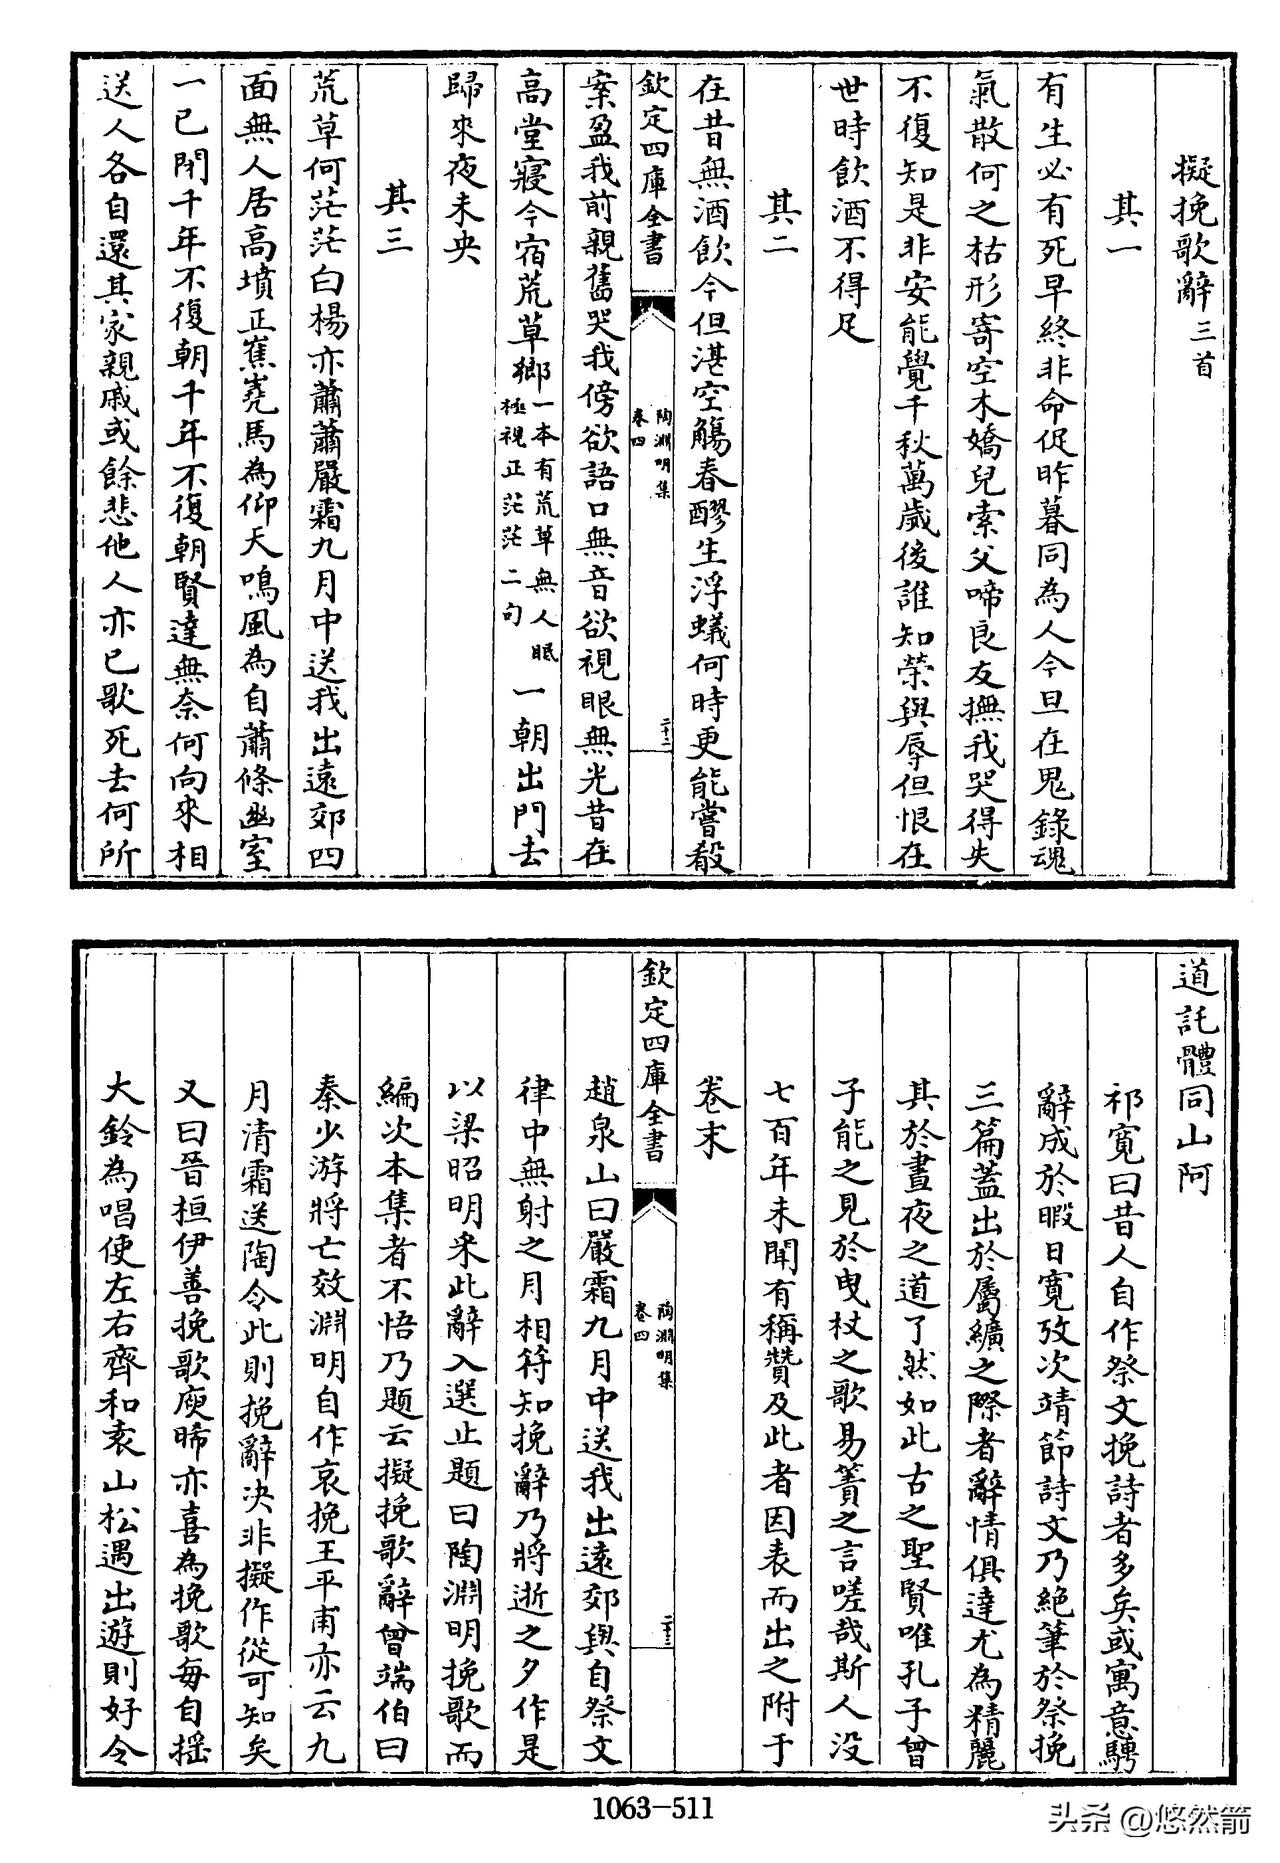 擬挽歌辭三首
其一
有生必有死早終非命促昨暮同為人今旦在鬼錄魂
氣散何之枯形寄空木嬌兒索父啼良友撫我哭得失
不復知是非安能覺千秋萬歲後誰知榮與辱但恨在
世時飲酒不得足
其二
在昔無酒飲今但湛空觴春醪生浮蟻何時更能嘗殽
欽定四庫全書
陶淵明集
卷四
二十二
案盈我前親舊哭我傍欲語口無音欲視眼無光昔在
高堂寢今宿荒草鄉一本有荒草無人眠
極視正茫茫二句一朝出門去
歸來夜未央
其三
荒草何茫茫白楊亦蕭蕭嚴霜九月中送我出遠郊四
面無人居高墳正嶣嶢馬為仰天鳴風為自蕭條幽室
一已閉千年不復朝千年不復朝賢達無奈何向來相
送人各自還其家親戚或餘悲他人亦已歌死去何所
道託體同山阿
祁寬曰昔人自作祭文挽詩者多矣或寓意騁
辭成於暇日寬攷次靖節詩文乃絕筆於祭挽
三篇蓋出於屬纊之際者辭情俱達尤為精麗
其於晝夜之道了然如此古之聖賢唯孔子曾
子能之見於曳杖之歌易簀之言嗟哉斯人沒
七百年未聞有稱贊及此者因表而出之附于
卷末
欽定四庫全書
陶淵明集
卷四
二十三
趙泉山曰嚴霜九月中送我出遠郊與自祭文
律中無射之月相符知挽辭乃將逝之夕作是
以梁昭明采此辭入選止題曰陶淵明挽歌而
編次本集者不悟乃題云擬挽歌辭曾端伯曰
秦少游將亡效淵明自作哀挽王平甫亦云九
月清霜送陶令此則挽辭决非擬作從可知矣
又曰晉桓伊善挽歌庾晞亦喜為挽歌每自搖
大鈴為唱使左右齊和袁山松遇出遊則好令
1063-511
头条 @悠然箭